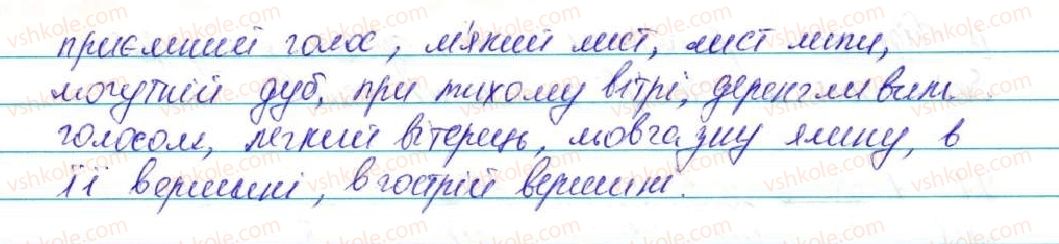 приємний голос, м'який лист, лист липи,
могутній дуб, при тихому вітрі, деренгливим
голосом, легкий вітерець, мовчазну ялину, в
її вершині, в гострій вершині.